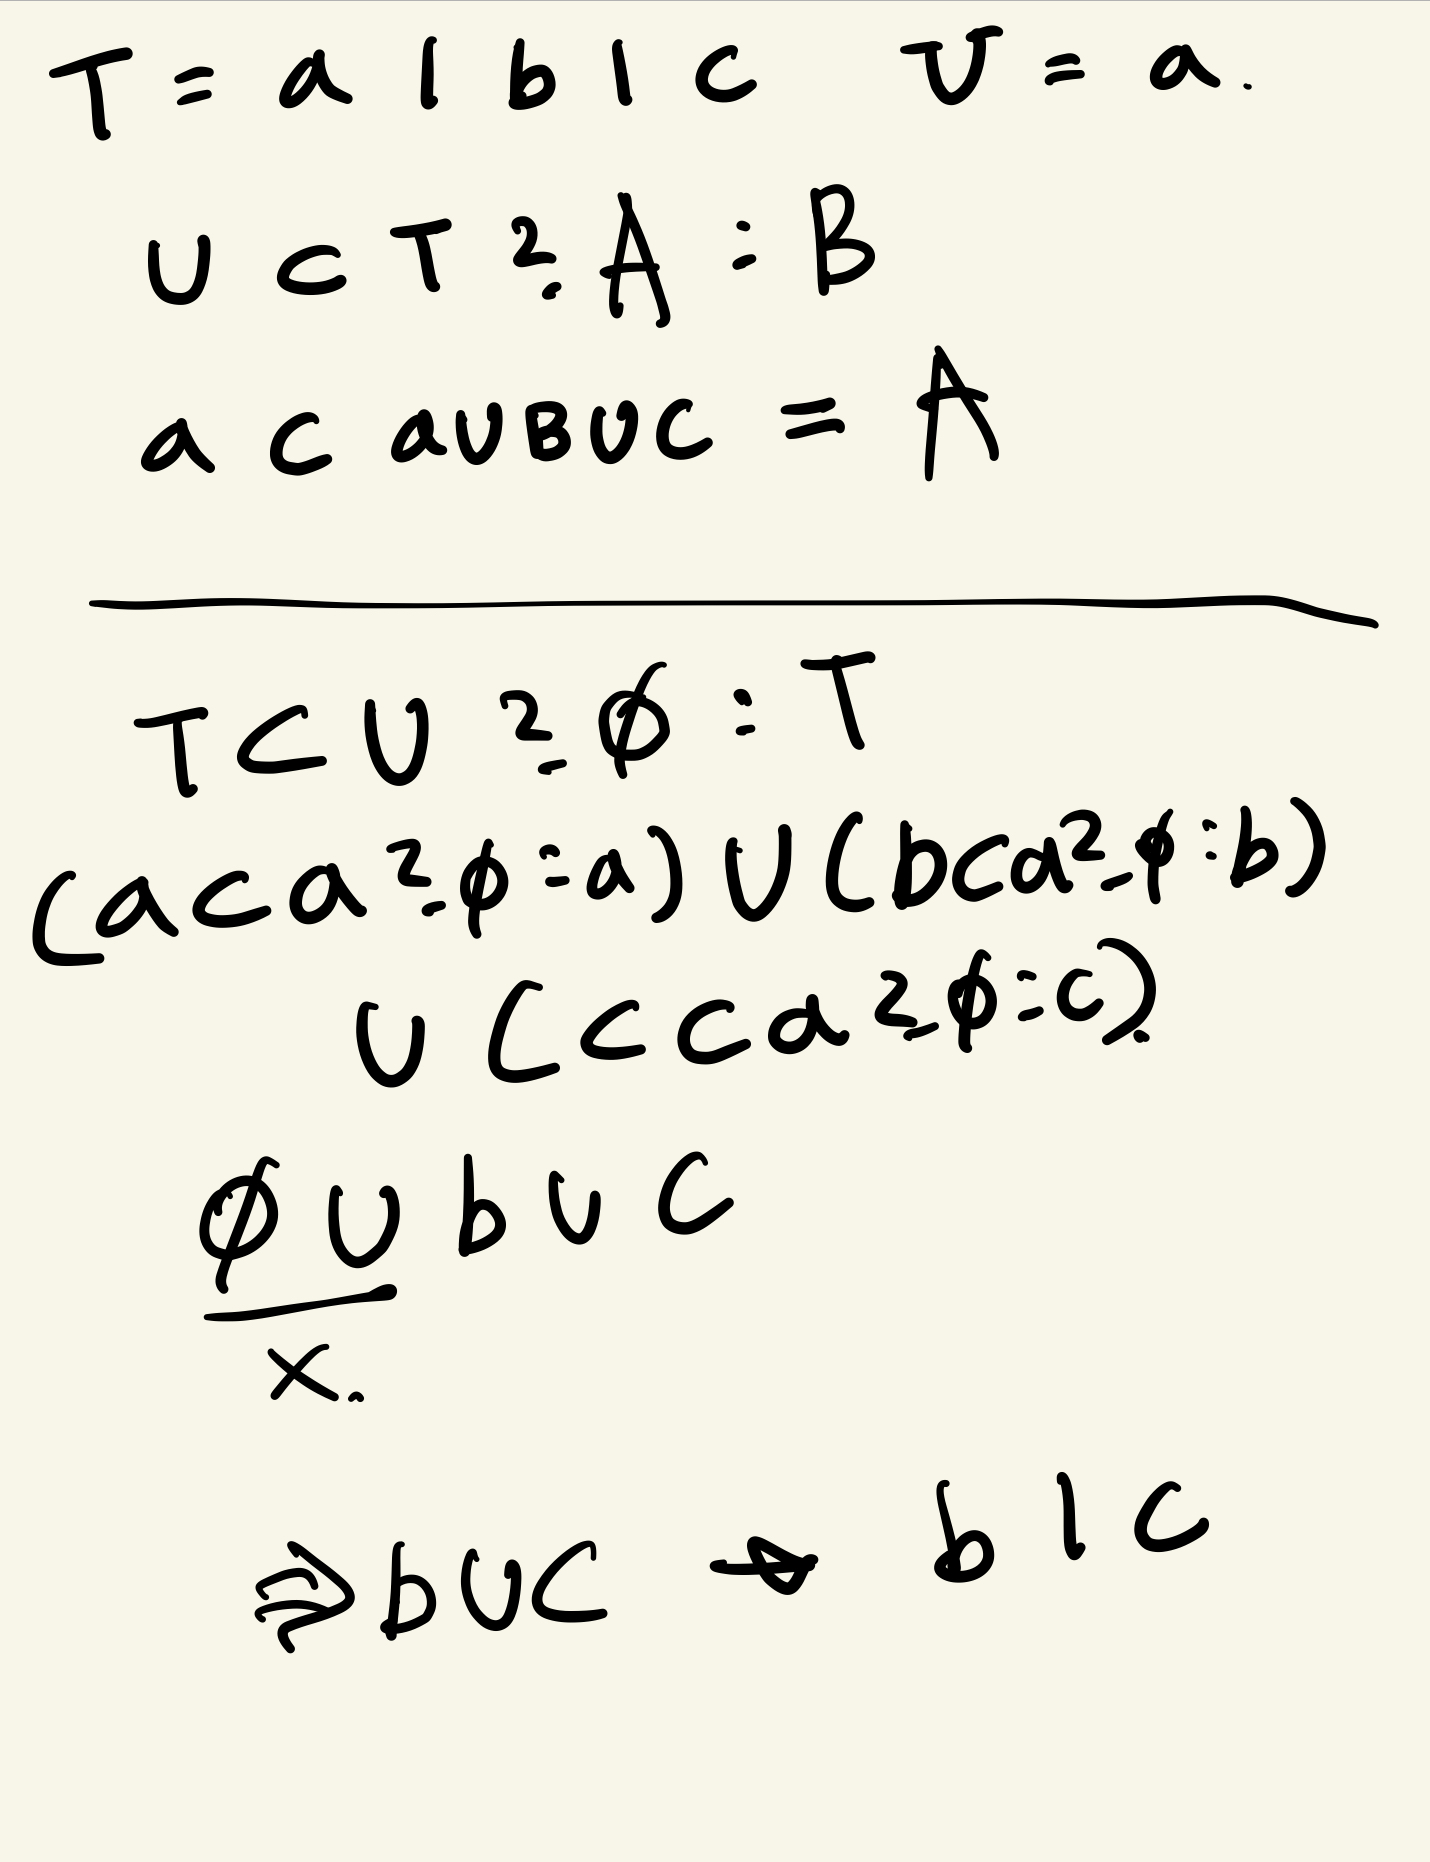 T = a | b | c U = a.
U ⊂ T ? A : B
a ⊂ a∪B∪C = A
T ⊂ U ? ∅ : T
(a⊂a ? ∅ : a) ∪ (b⊂a ? ∅ : b)
∪ (c⊂a ? ∅ : c)
∅ ∪ b ∪ C
x.
⇒ b∪C → b | c